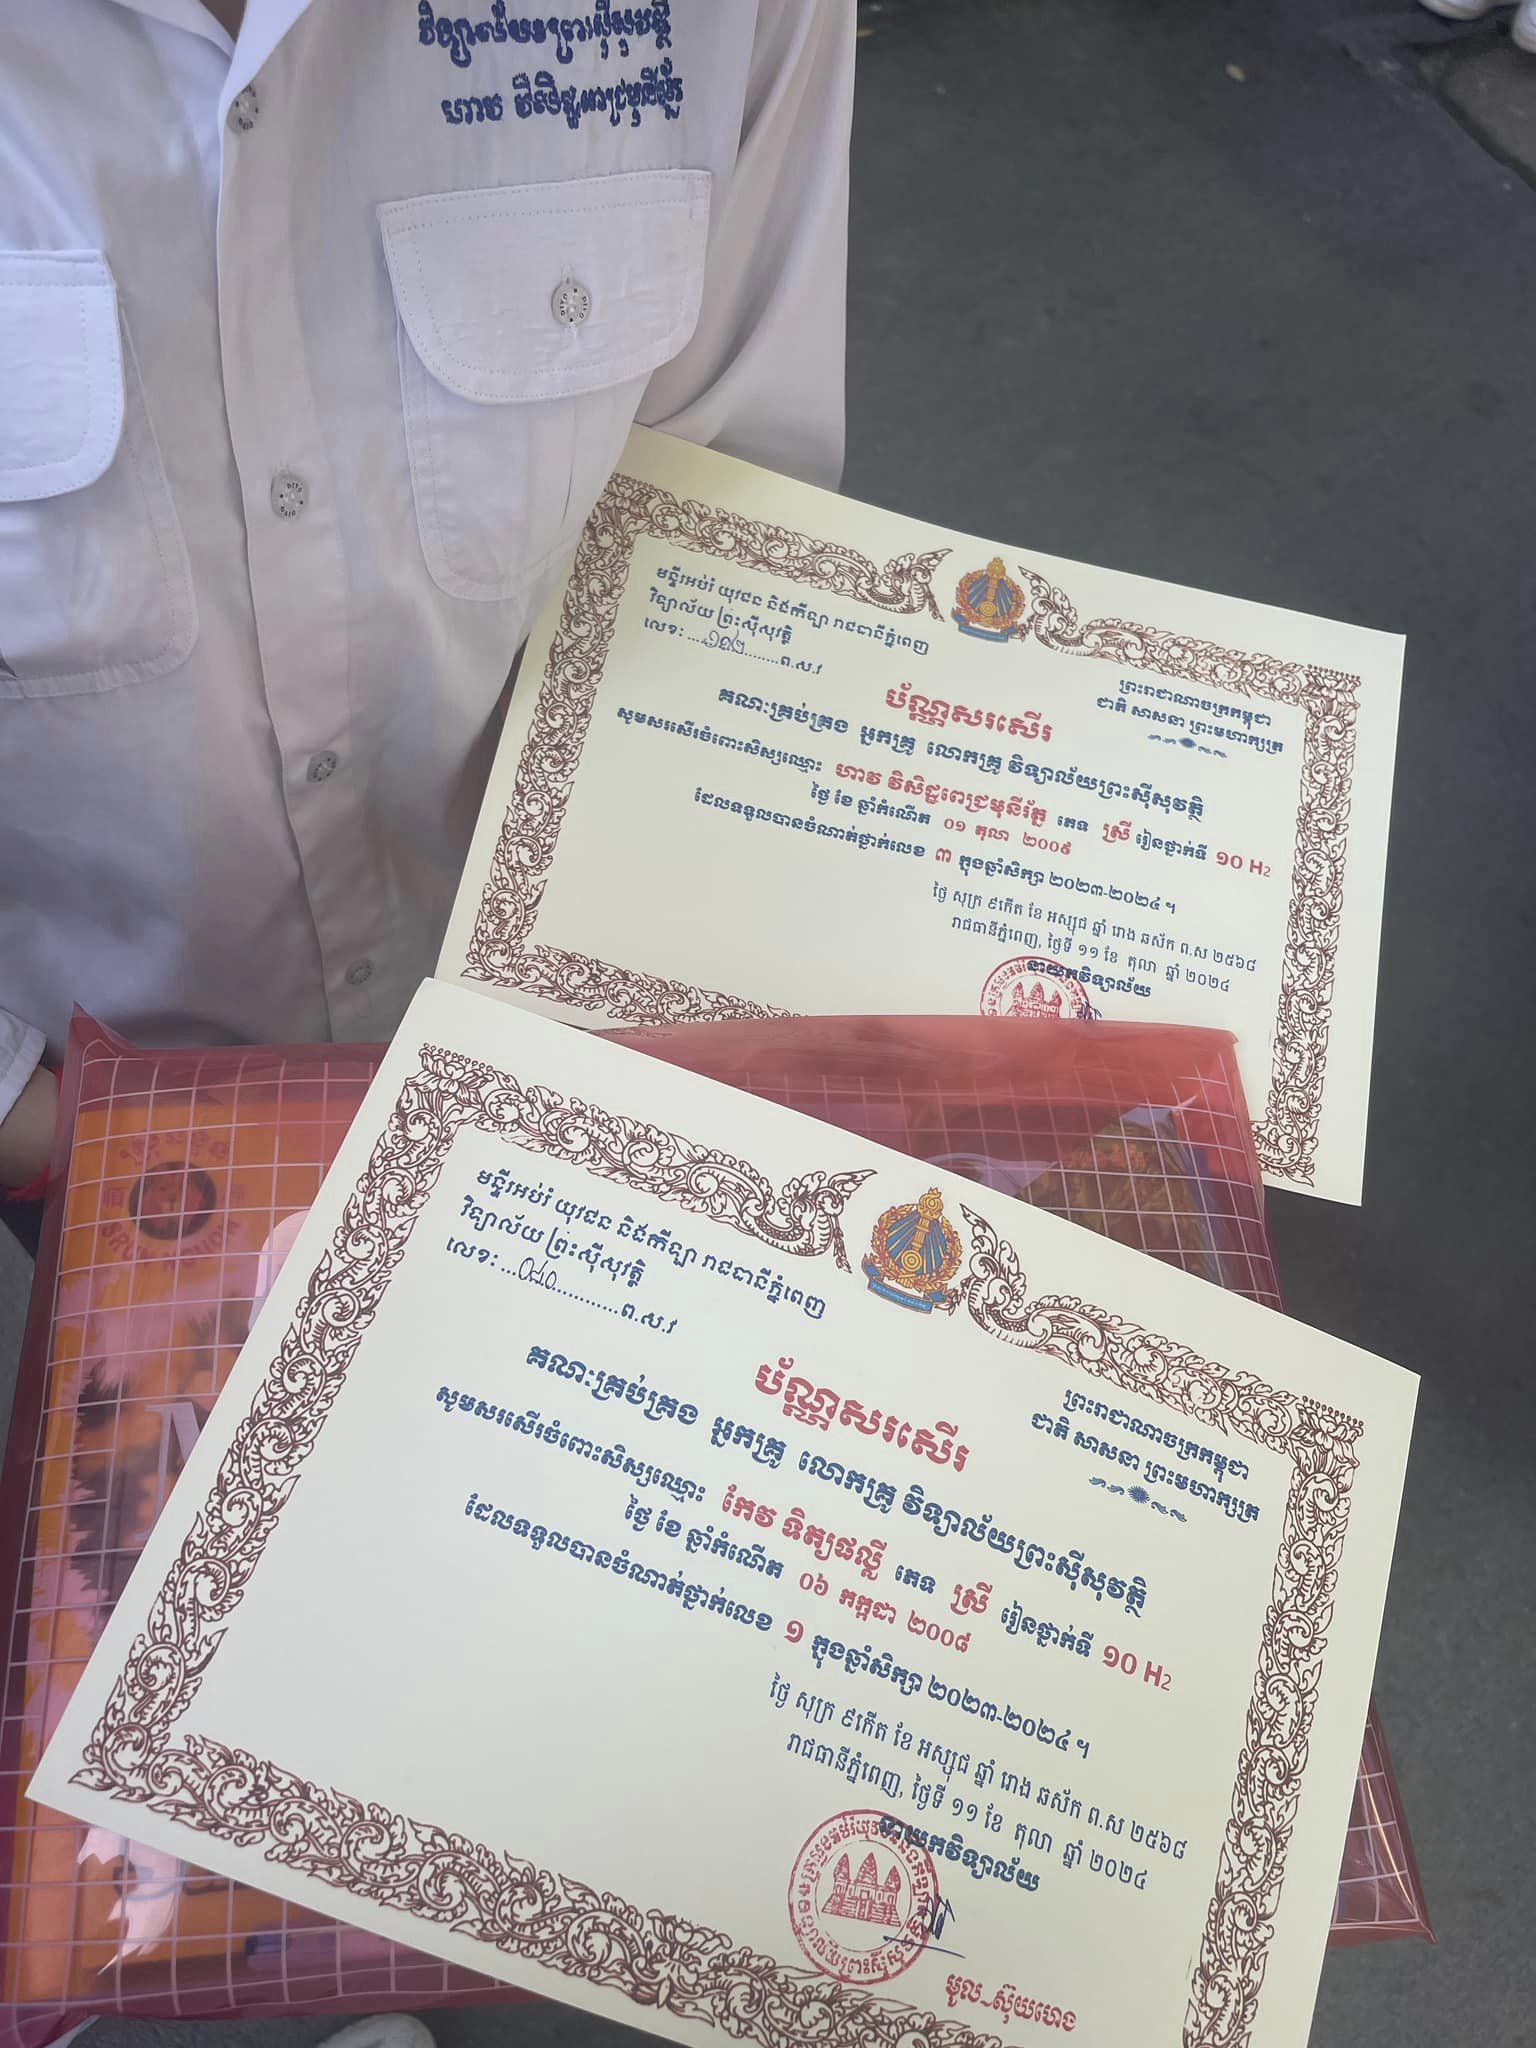 វិទ្យាល័យព្រះស៊ីសុវត្ថិ
ហាវ វិសិដ្ឋពេជ្រមុនីរ័ត្ន
មន្ទីរអប់រំ យុវជន និងកីឡា រាជធានីភ្នំពេញ
វិទ្យាល័យ ព្រះស៊ីសុវត្ថិ
លេខ: ... ........ព.ស.វ
ព្រះរាជាណាចក្រកម្ពុជា
ជាតិ សាសនា ព្រះមហាក្សត្រ
ប័ណ្ណសរសើរ
គណៈគ្រប់គ្រង អ្នកគ្រូ លោកគ្រូ វិទ្យាល័យព្រះស៊ីសុវត្ថិ
សូមសរសើរចំពោះសិស្សឈ្មោះ ហាវ វិសិដ្ឋពេជ្រមុនីរ័ត្ន ភេទ ស្រី រៀនថ្នាក់ទី ១០ H2
ថ្ងៃ ខែ ឆ្នាំកំណើត ០១ តុលា ២០០៩
ដែលទទួលបានចំណាត់ថ្នាក់លេខ ៣ ក្នុងឆ្នាំសិក្សា ២០២៣-២០២៤ ។
ថ្ងៃ សុក្រ ៩កើត ខែ អស្សុជ ឆ្នាំ រោង ឆស័ក ព.ស ២៥៦៨
រាជធានីភ្នំពេញ, ថ្ងៃទី ១១ ខែ តុលា ឆ្នាំ ២០២៤
នាយកវិទ្យាល័យ
មន្ទីរអប់រំ យុវជន និងកីឡា រាជធានីភ្នំពេញ
វិទ្យាល័យ ព្រះស៊ីសុវត្ថិ
លេខ: ... ............ព.ស.វ
ព្រះរាជាណាចក្រកម្ពុជា
ជាតិ សាសនា ព្រះមហាក្សត្រ
ប័ណ្ណសរសើរ
គណៈគ្រប់គ្រង អ្នកគ្រូ លោកគ្រូ វិទ្យាល័យព្រះស៊ីសុវត្ថិ
សូមសរសើរចំពោះសិស្សឈ្មោះ កែវ ទិត្យផល្លី ភេទ ស្រី រៀនថ្នាក់ទី ១០ H2
ថ្ងៃ ខែ ឆ្នាំកំណើត ០៦ កក្កដា ២០០៨
ដែលទទួលបានចំណាត់ថ្នាក់លេខ ១ ក្នុងឆ្នាំសិក្សា ២០២៣-២០២៤ ។
ថ្ងៃ សុក្រ ៩កើត ខែ អស្សុជ ឆ្នាំ រោង ឆស័ក ព.ស ២៥៦៨
រាជធានីភ្នំពេញ, ថ្ងៃទី ១១ ខែ តុលា ឆ្នាំ ២០២៤
នាយកវិទ្យាល័យ
មូល ស៊ុយហេង